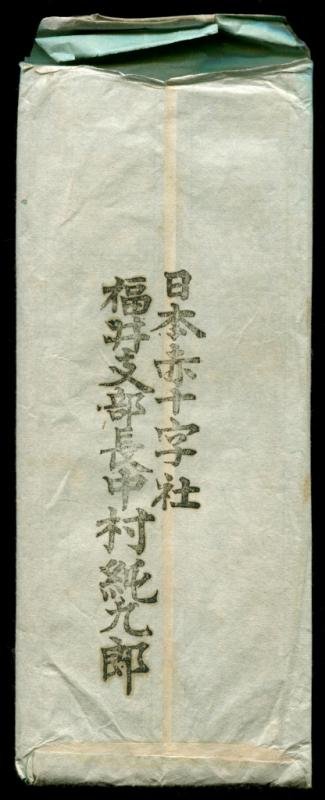 日本赤十字社
福井支部長中村純九郎